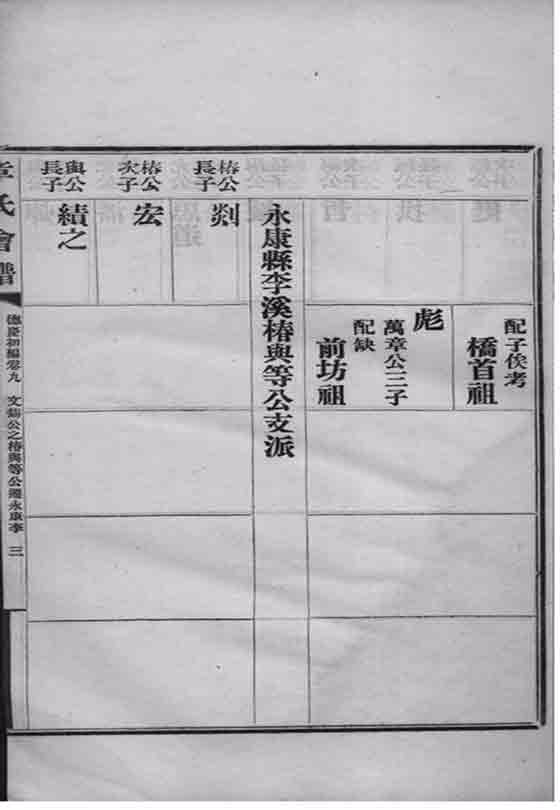 配子俟考
橋首祖
彪
萬章公三子
配缺
前坊祖
永康縣李溪椿與等公支派
椿公長子
剡
椿公次子
宏
與公長子
績之
章氏會譜
德慶初編卷九 文鑄公之椿與等公遷永康李 三